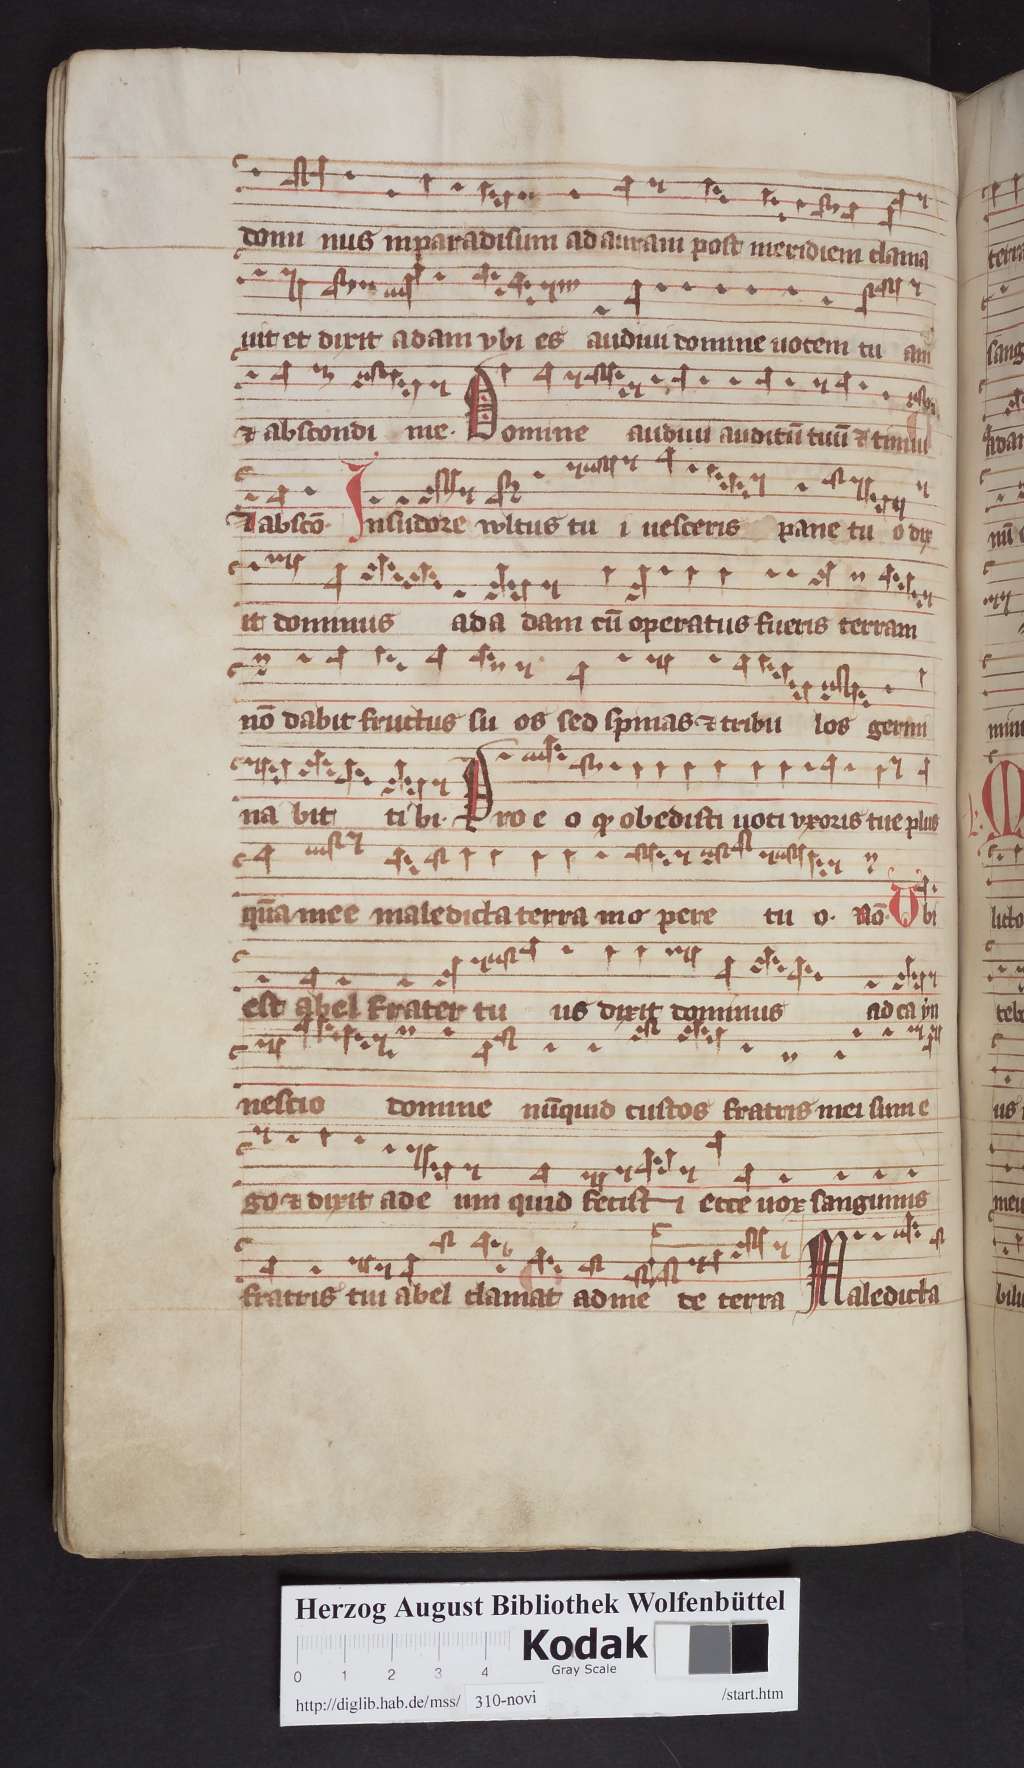 domi nus in paradisum ad auram post meridiem clama
uit et dixit adam vbi es audiui domine uocem tu am
⁊ abscondi me. Domine audiui auditū tuū ⁊ timui
⁊ abscō. In sudore wltus tu i uesceris pane tu o dix
it dominus ad a dam cū operatus fueris terram
nō dabit fructus su os sed spinas ⁊ tribu los germi
na bit ti bi. Pro e o ꝙ obedisti uoci vxoris tue plus
quā mee maledicta terra in o pere tu o. Nō. Vbi
est abel frater tu us dixit dominus ad ca yn
nescio domine nūquid custos fratris mei sum e
go ⁊ dixit ad e um quid fecist i ecce uox sanguinis
fratris tui abel clamat ad me de terra Maledicta
Herzog August Bibliothek Wolfenbüttel
0 1 2 3 4
Kodak
Gray Scale
http://diglib.hab.de/mss/ 310-novi /start.htm